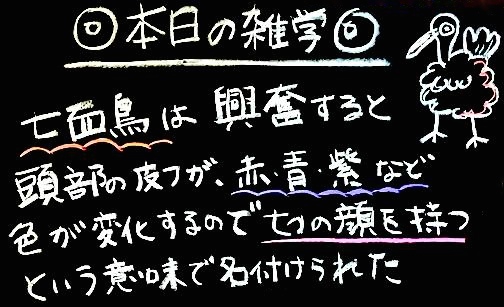 ◎本日の雑学◎
七面鳥は興奮すると
頭部の皮フが、赤・青・紫など
色が変化するので七つの顔を持つ
という意味で名付けられた